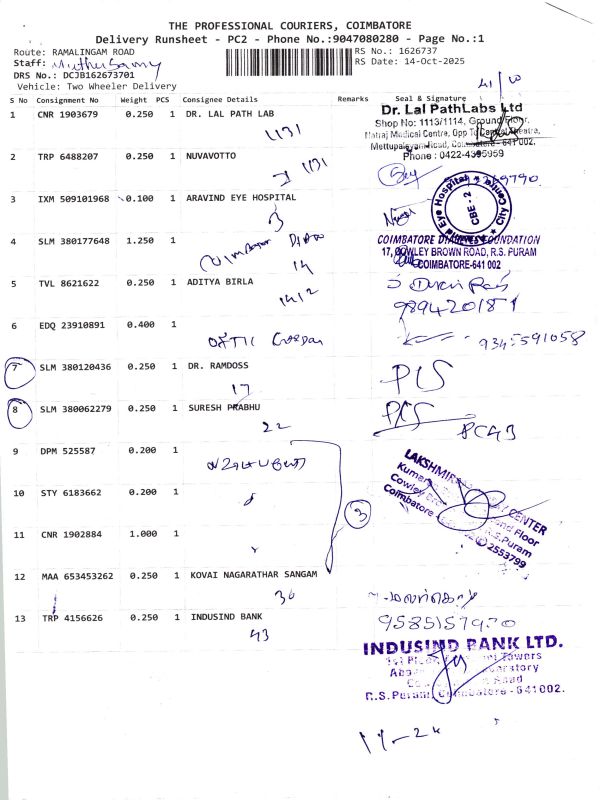 THE PROFESSIONAL COURIERS, COIMBATORE
Delivery Runsheet - PC2 - Phone No.:9047080280 - Page No.:1
Route: RAMALINGAM ROAD
RS No.: 1626737
Staff: Muthu Samy
RS Date: 14-Oct-2025
DRS No.: DCJB162673701
Vehicle: Two Wheeler Delivery
S No Consignment No Weight PCS Consignee Details Remarks Seal & Signature
1 CNR 1903679 0.250 1 DR. LAL PATH LAB
1131
Dr. Lal PathLabs Ltd
Shop No: 1113/1114, Ground Floor,
Natraj Medical Centre, Opp To Central Theatre,
Mettupalayam Road, Coimbatore - 641 002.
Phone : 0422-4395959
2 TRP 6488207 0.250 1 NUVAVOTTO
1131
3 IXM 509101968 0.100 1 ARAVIND EYE HOSPITAL
3
Eye Hospital
City Centre
CBE - 2
4 SLM 380177648 1.250 1
Coimbatore Diabe
14
COIMBATORE DIABETES FOUNDATION
17, COWLEY BROWN ROAD, R.S. PURAM
COIMBATORE-641 002
5 TVL 8621622 0.250 1 ADITYA BIRLA
1412
9894420181
6 EDQ 23910891 0.400 1
9345591058
7 SLM 380120436 0.250 1 DR. RAMDOSS
17
8 SLM 380062279 0.250 1 SURESH PRABHU
22
9 DPM 525587 0.200 1
10 STY 6183662 0.200 1
3
LAKSHMI CENTER
Cowley
Floor
Coimbatore R.S.Puram
2553799
11 CNR 1902884 1.000 1
12 MAA 653453262 0.250 1 KOVAI NAGARATHAR SANGAM
36
13 TRP 4156626 0.250 1 INDUSIND BANK
43
9585157920
INDUSIND BANK LTD.
Towers
Road
R.S.Puram, Coimbatore - 641002.
11-24